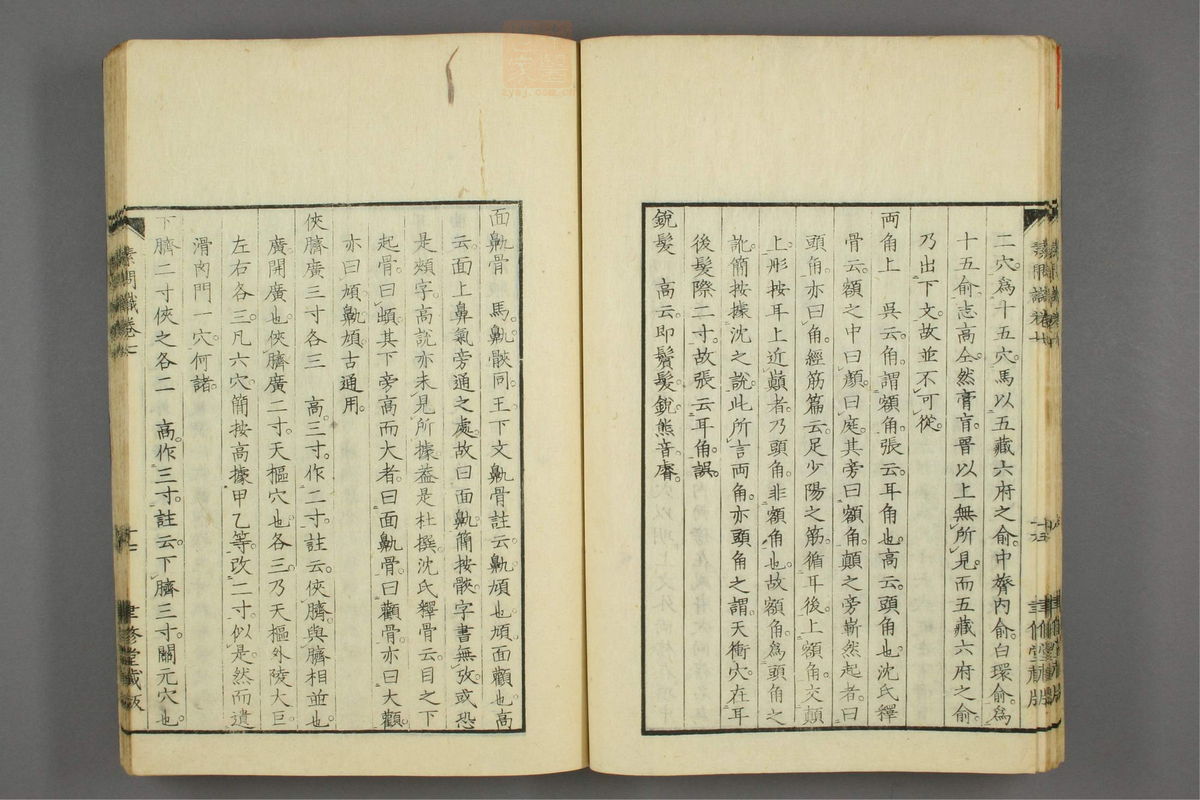 二穴。爲十五穴。馬以五藏六府之俞。中膂內俞。白環俞爲
十五俞。志高仝。然膏肓。晉以上無所見。而五藏六府之俞。
乃出下文。故並不可從。
両角上　吳云。角。謂額角。張云。耳角也。高云。頭角也。沈氏釋
骨云。額之中曰顏。曰庭。其旁曰額角。顛之旁嶄然起者。曰
頭角。亦曰角。經筋篇云。足少陽之筋。循耳後。上額角。交顛
上。彤按耳上近巔者。乃頭角。非額角也。故額角爲頭角之
訛。簡按據沈之說。此所言両角。亦頭角之謂。天衝穴。在耳
後髮際二寸。故張云耳角。誤。
銳髮　高云。即鬢髮。銳。熊音。睿。
面鼽骨　馬。鼽骸同。王下文鼽骨註云。鼽。頄也。頄。面顴也。高
云。面上鼻氣旁通之處。故曰面鼽。簡按骸。字書無攷。或恐
是頰字。高說亦未見所據。葢是杜撰。沈氏釋骨云。目之下
起骨。曰䪼。其下旁高而大者。曰面鼽骨。曰顴骨。亦曰大顴。
亦曰頄。鼽頄古通用。
俠臍廣三寸各三　高。三寸。作二寸。註云。俠臍。與臍相並也。
廣。開廣也。俠臍廣二寸。天樞穴也。各三。乃天樞外陵大巨。
左右各三。凡六穴。簡按高據甲乙等。改二寸。似是。然而遺
滑肉門一穴。何諸。
下臍二寸俠之各二　高。作三寸。註云。下臍三寸。關元穴也。
素問識卷七
聿修堂藏版